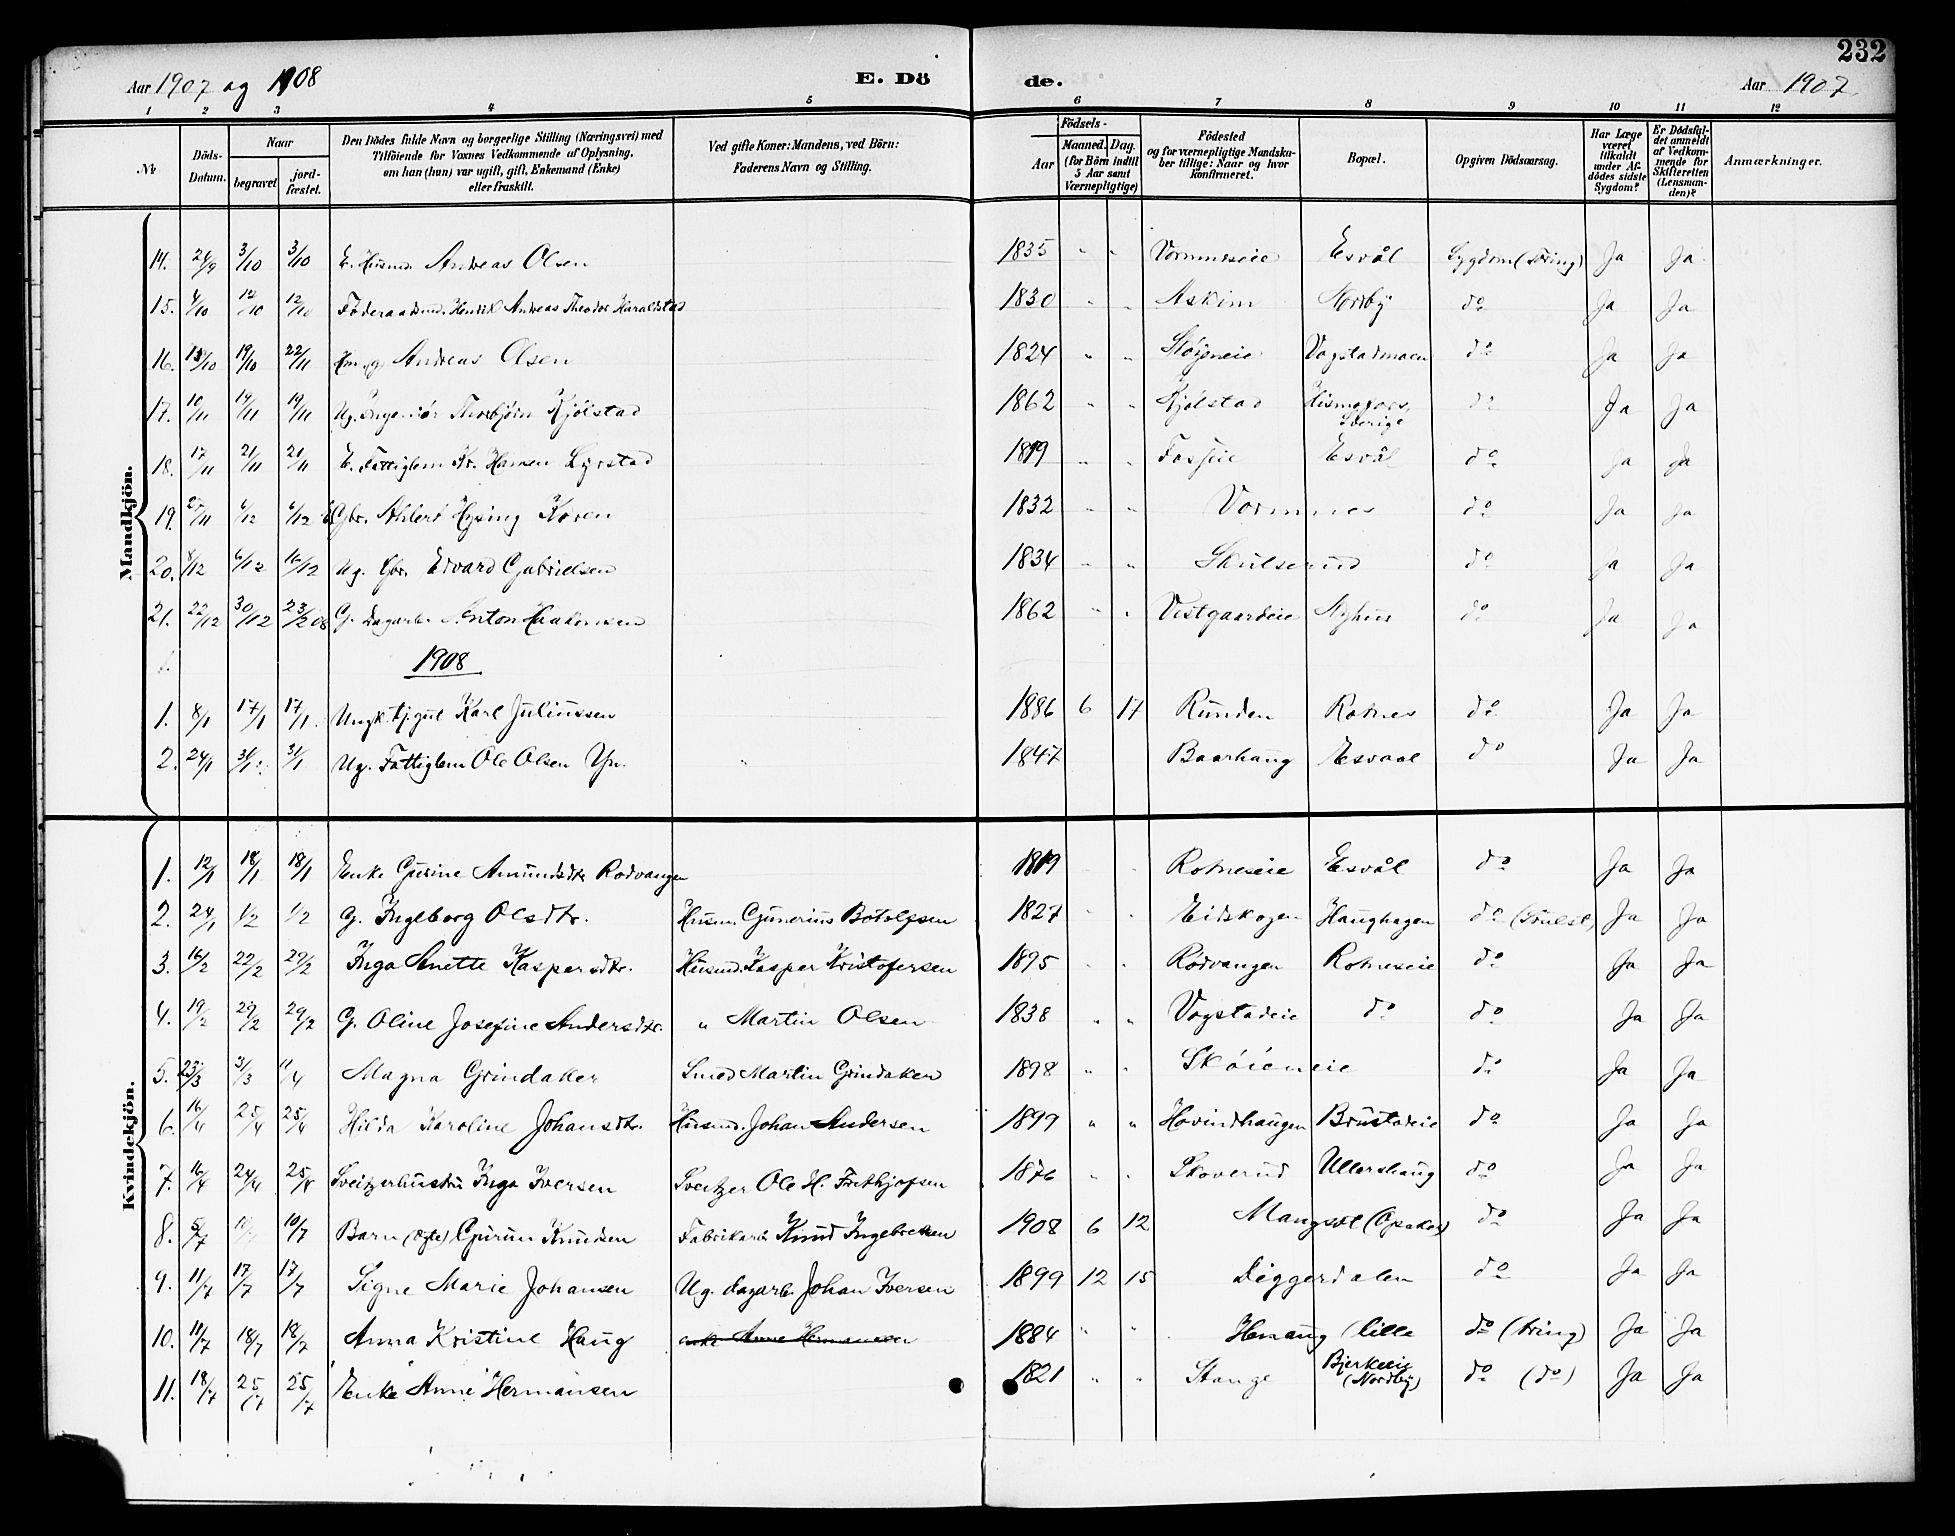 232
Aar 1907 og 1908 E. Dö de. Aar 1907.
1 2 3 4 5 6 7 8 9 10 11 12
No
Döds-Datum.
Naar
begravet
jordfæstet.
Den Dödes fulde Navn og borgerlige Stilling (Næringsvei) med Tilföiende for Voxnes Vedkommende af Oplysning, om han (hun) var ugift, gift, Enkemand (Enke) eller fraskilt.
Ved gifte Koner: Mandens, ved Börn: Faderens Navn og Stilling.
Födsels-
Aar
Maaned. Dag.
(for Börn indtil 5 Aar samt Værnepligtige)
Födested og for værnepligtige Mandskaber tillige: Naar og hvor konfirmeret.
Bopæl.
Opgiven Dödsaarsag.
Har Læge været tilkaldt under Afdödes sidste Sygdom?
Er Dödsfaldet anmeldt af Vedkommende for Skifteretten (Lensmanden)?
Anmærkninger.
Mandkjön.
14. 3/10 3/10 E. Husmd. Andreas Olsen 1835 " " Vormneseie Esvål Sygdom Ja Ja
15. 4/10 12/10 12/10 Föderaadsmd. Henrik Andreas Theodor Haraldstad 1830 " " Askim Nordby do Ja Ja
16. 19/10 22/11 Andreas Olsen 1824 " " Vogstadmoen do Ja Ja
17. 10/11 19/11 19/11 Ug. Ingeniör Thorbjörn Kjölstad 1862 " " Kjölstad Hismofors, Sverige do Ja Ja
18. 17/11 21/11 21/11 E. Fattiglem Kr. Hansen Lyrstad 1819 " " Fosseie Esvål do Ja Ja
19. 6/12 6/12 Gbr. Ahlert Hysing Koren 1832 " " Vormnes do Ja Ja
20. 6/12 16/12 Ug. Gbr. Edvard Gabrielsen 1834 " " Skulserud do Ja Ja
21. 22/12 30/12 23/2 08 G. Dagarb. Anton Haakensen 1862 " " Vestgaardeie Nyhus do Ja Ja
1908
1. 8/1 17/1 17/1 Ungk. tj.gut Karl Juliussen 1886 6 17 Runden Rotnes do Ja Ja
2. 24/1 31/1 31/1 Ug. Fattiglem Ole Olsen Yn. 1847 Baarhaug Esvaal do Ja Ja
Kvindekjön.
1. 12/1 18/1 18/1 Enke Gurine Amundsdtr. Rodvangen 1819 " " Rotneseie Esvål do Ja Ja
2. 24/1 1/2 1/2 G. Ingeborg Olsdtr. Husm. Gunerius Botolfsen 1827 " " Eidskogen Haughagen do Ja Ja
3. 16/2 22/2 29/2 Inga Anette Kaspersdtr. Husmd. Kasper Kristofersen 1895 " " Rodvangen Rotneseie do Ja Ja
4. 19/2 29/2 29/2 G. Oline Josefine Andersdtr. " Martin Olsen 1838 " " Vogstadeie do do Ja Ja
5. 23/3 31/3 11/4 Magna Grindaker Smed Martin Grindaker 1898 " " Skóieneie do Ja Ja
6. 16/4 25/4 25/4 Hilda Karoline Johansdtr. Husmd. Johan Andersen 1899 " " Hovindhaugen Brustadeie do Ja Ja
7. 16/4 24/4 25/4 Sveitzerhustru Inga Iversen Sveitzer Ole H. Frithjofsen 1876 " " Skoverud Ullershaug do Ja Ja
8. 5/7 10/7 Barn (ægte) Gurun Knudsen Fabrikarb. Knud Ingebretsen 1908 6 12 Mangset (Opaker) do Ja Ja
9. 11/7 17/7 17/7 Signe Marie Johansen Ug. dagarb. Johan Iversen 1899 12 15 Diggerdalen do Ja Ja
10. 11/7 18/7 18/7 Anna Kristine Haug enke Anne Hermansen 1884 " " Henaug lille do (tring) Ja Ja
11. 18/7 25/7 25/7 Enke Anne Hermansen 1821 " " Stange Bjerkeeie (Nordby) do (do) Ja Ja